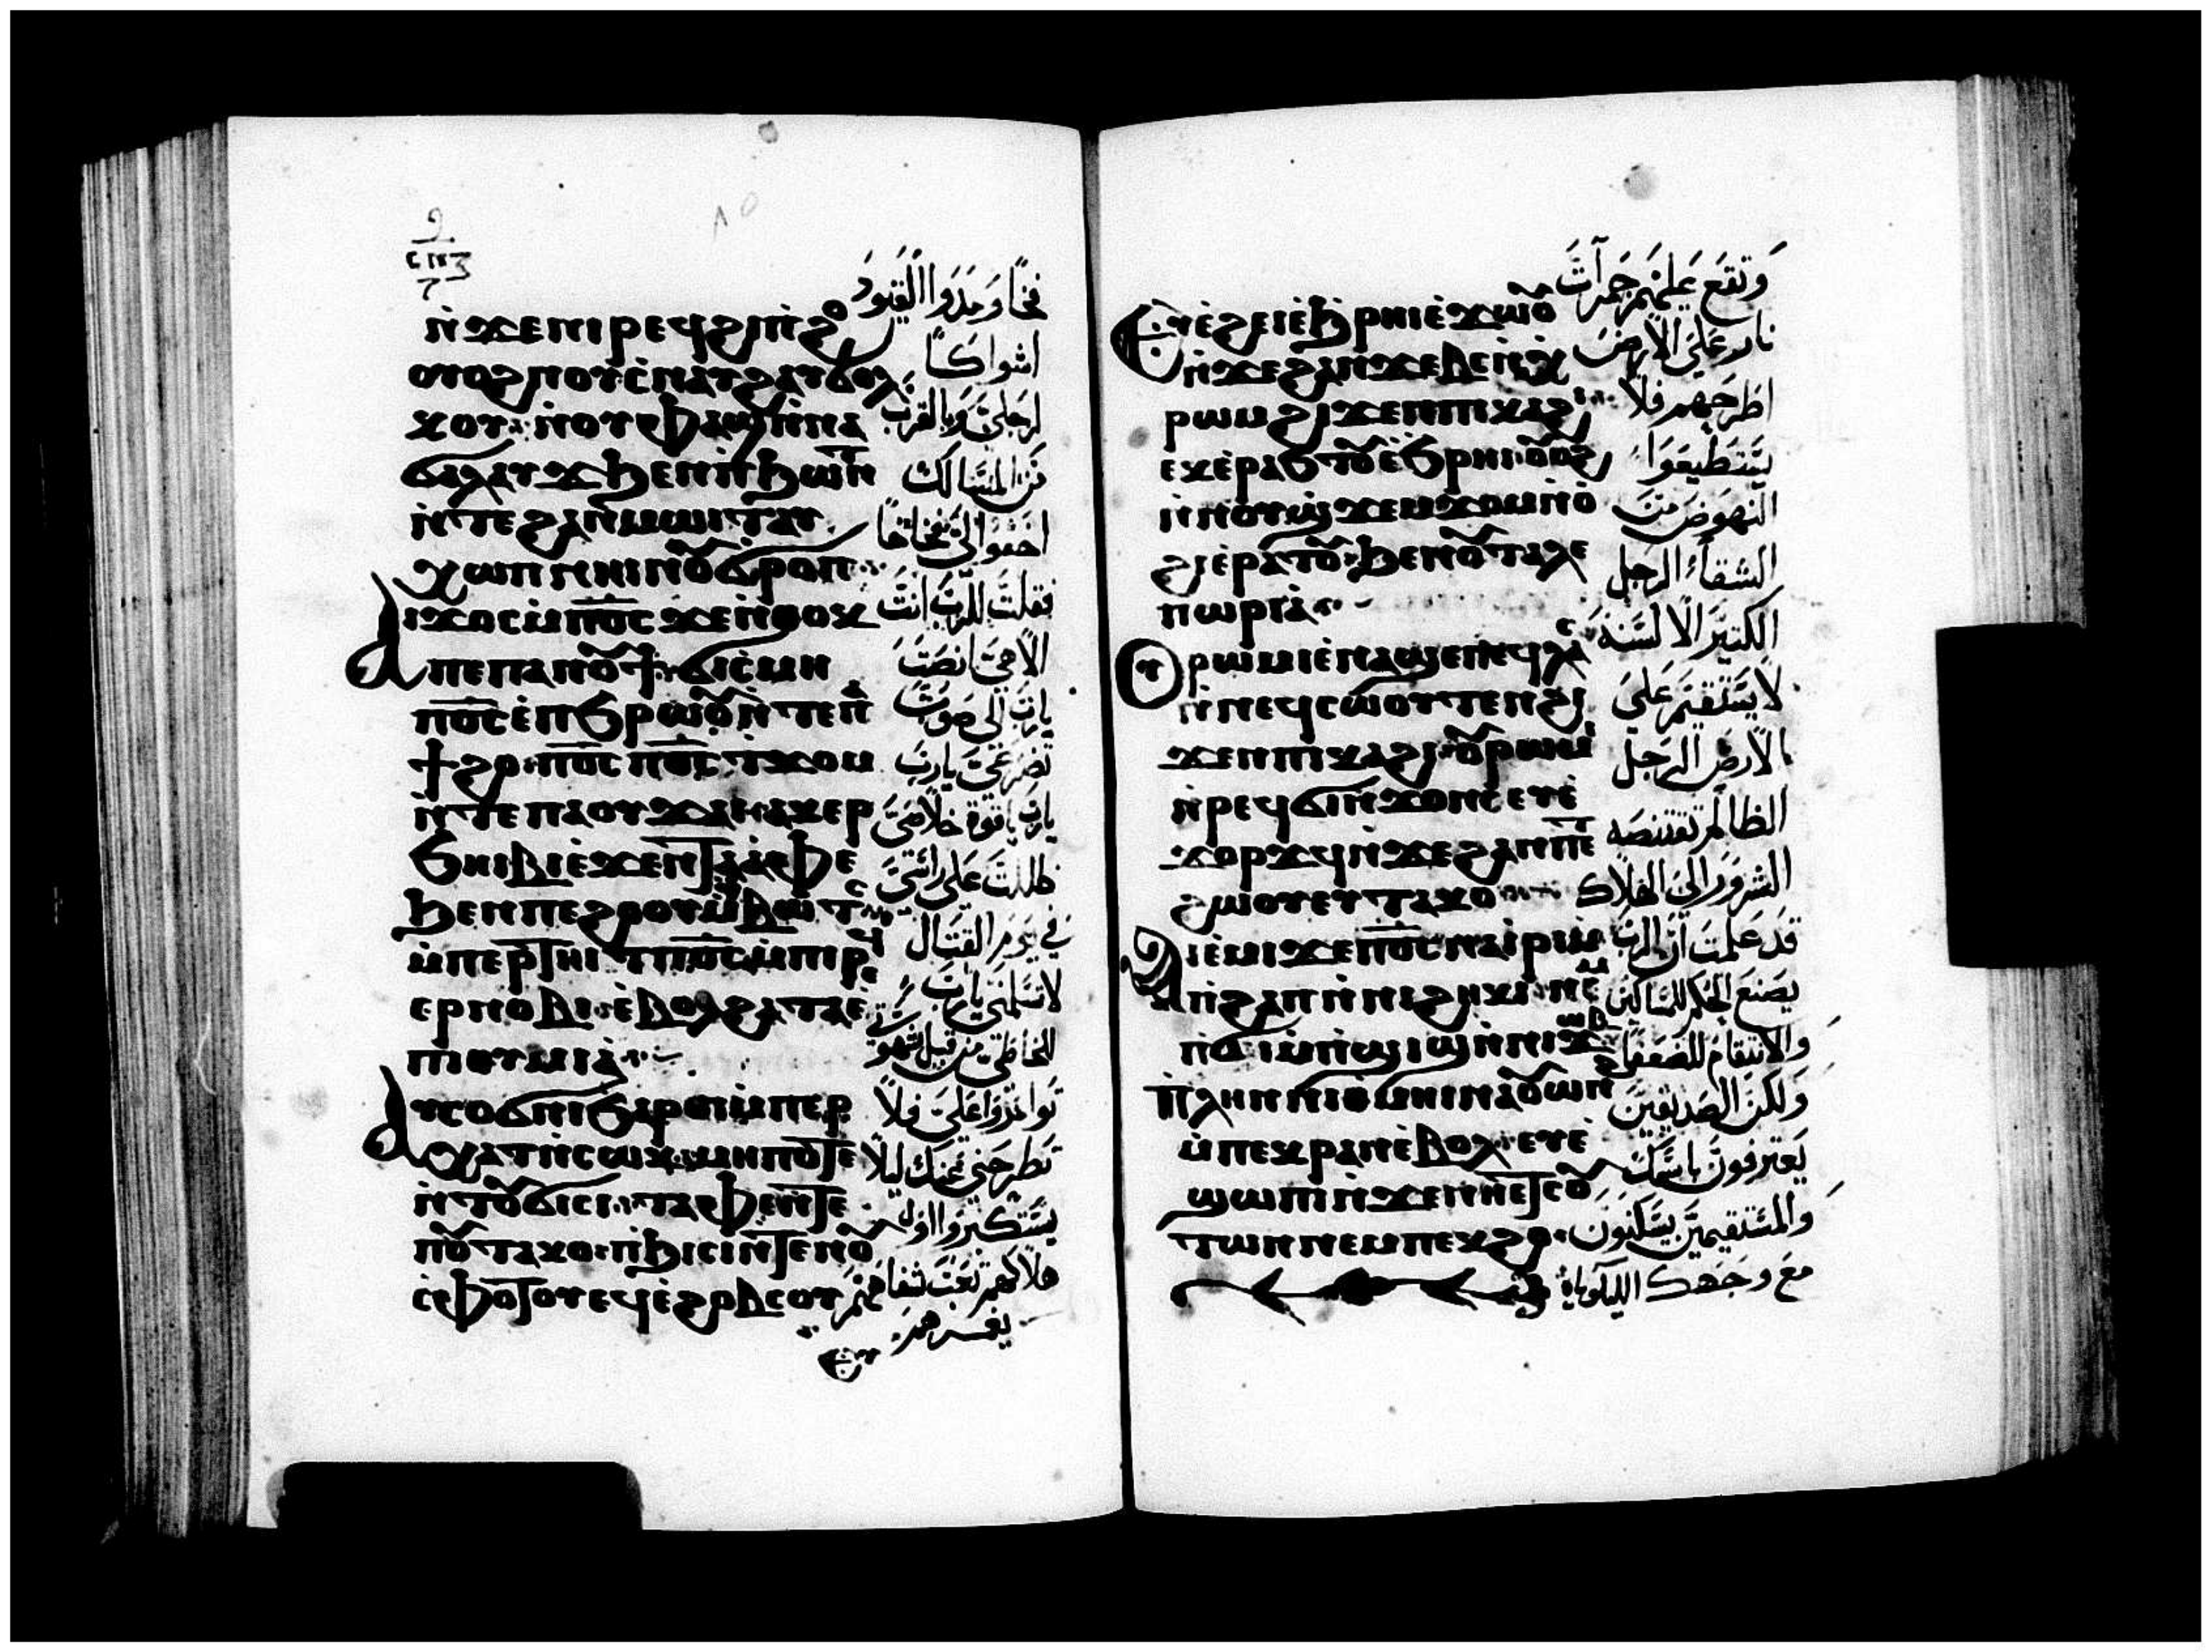 ⲥⲡⲍ
ⲛ̇ϫⲉⲛⲓⲣⲉϥϭⲓⲡ̇ϩⲟ
ⲟⲩⲟϩ ⲛⲟⲩⲥⲛⲁⲩϩ ⲁⲩϭⲟⲗ
ⲭⲟⲩ ⲛ̇ⲟⲩⲫⲁϣ ⲛ̇ⲛⲁ
ϭⲁⲗⲁⲩϫ ϧⲉⲛⲛ̇ϧⲱⲛ
ⲛ̇ⲧⲉϩⲁⲛⲙⲱⲓⲧ ⲁⲩ
ⲭⲱⲡ ⲛⲏⲓ ⲛ̇ⲟ̅ϭⲣⲟⲡ
ⲁⲓϫⲟⲥ ⲙ̇ⲡⲟ̅ⲥ̅ ϫⲉⲛ̇ⲑⲟⲕ
ⲡⲉ ⲡⲁⲛⲟⲩϯ ϭⲓⲥ̇ⲙⲏ
ⲡⲟ̅ⲥ̅ ⲉ̇ⲡϧⲣⲱⲟⲩ ⲛ̇ⲧⲉⲡⲁ
ϯϩⲟ ⲡⲟ̅ⲥ̅ ⲡⲟ̅ⲥ̅ ⲧϫⲟⲙ
ⲛ̇ⲧⲉⲡⲁⲟⲩϫⲁⲓ ⲁⲕⲉⲣ
ϧⲏⲓⲃⲓ ⲉ̇ϫⲉⲛⲧⲁⲁ̇ⲫⲉ
ϧⲉⲛⲡⲉϩⲟⲟⲩ ⲙ̇ⲃⲱⲧⲥ
ⲙ̇ⲡⲉⲣⲧⲏⲓⲧ ⲡⲟ̅ⲥ̅ ⲙ̇ⲡⲓⲣⲉϥ
ⲉⲣⲛⲟⲃⲓ ⲉ̇ⲃⲟⲗϩⲁ ⲧⲁⲉ̇
ⲡⲓⲑⲩⲙⲓⲁ̇
ⲁⲩⲥⲟϭⲛⲓ ϧⲁⲣⲟⲓ ⲙ̇ⲡⲉⲣ
ⲭⲁⲧ ⲛ̇ⲥⲱⲕ ⲙⲏⲡⲟⲧⲉ
ⲛ̇ⲧⲟⲩϭⲓⲥⲓ ⲧⲁⲫⲉ ⲛ̇ⲧⲉ
ⲡⲟⲩⲧⲁⲕⲟ ⲡ̇ϧⲓⲥⲓ ⲛ̇ⲧⲉⲛⲟⲩ
ⲥ̇ⲫⲟⲧⲟⲩ ⲉϥⲉ̇ϩⲟⲃⲥⲟⲩ
ⲉⲩ
فخًا ومدوا القيود
اشواكًا
لرجلي وبالقرب
من المسالك
اخفوا لي فخاخًا
فقلت للرب انت
الاهي انصت
يارب الى صوت
تضرعي يارب
يارب ياقوة خلاصي
ظللت على راسي
في يوم القتال
لا تسلمني يارب
للخاطي من قبل شهوتي
توامروا علي فلا
تطرحني عنك ليلا
يستكبروا
هلاكهم تعب شفاههم
يغمرهم
ⲉⲩⲉ̇ϩⲉⲓ ⲉ̇ϧⲣⲏⲓ ⲉ̇ϫⲱⲟⲩ
ⲛ̇ϫⲉϩⲁⲛϫⲉⲃⲉⲛ̇ⲭ
ⲣⲱⲙ ϩⲓϫⲉⲛ ⲡⲓⲕⲁϩⲓ
ⲉⲕⲉ̇ⲣⲁϧⲧⲟⲩ ⲉ̇ϧⲣⲏⲓ ⲟⲩⲟϩ
ⲛ̇ⲛⲟⲩϣϫⲉⲙϫⲟⲙ ⲛ̇ⲟ̇
ϩⲓ ⲉ̇ⲣⲁⲧⲟⲩ ϧⲉⲛⲟⲩⲧⲁⲗⲉ
ⲡⲱⲣⲓⲁ̇
ⲟⲩⲣⲱⲙⲓ ⲉ̇ⲛⲁϣⲉ ⲡⲉϥⲗⲁⲥ
ⲛ̇ⲛⲉϥⲥⲱⲟⲩⲧⲉⲛ ϩⲓ
ϫⲉⲛ ⲡⲓⲕⲁϩⲓ ⲟⲩⲣⲱⲙⲓ
ⲛ̇ⲣⲉϥϭⲓⲛ̇ϫⲟⲛⲥ ⲉⲩⲉ̇
ϫⲟⲣϫϥ ⲛ̇ϫⲉϩⲁⲛⲡⲉⲧ
ϩⲱⲟⲩ ⲉⲩⲧⲁⲕⲟ
ⲁⲓⲉ̇ⲙⲓ ϫⲉⲡⲟ̅ⲥ̅ ⲛⲁⲓⲣⲓ ⲙ̇
ⲡ̇ϩⲁⲡ ⲛ̇ⲛⲓϩⲏⲕⲓ ⲛⲉⲙ
ⲡϭⲓⲙ̇ⲡ̇ϣⲓϣ ⲛ̇ⲛⲓϫⲱⲃ
ⲡⲗⲏⲛ ⲛⲓⲑⲙⲏⲓ ⲛⲁⲟⲩⲱⲛϩ
ⲙ̇ⲡⲉⲕⲣⲁⲛ ⲉ̇ⲃⲟⲗ ⲉⲩⲉ̇
ϣⲱⲡⲓ ⲛ̇ϫⲉⲛⲏⲉⲧⲥⲟⲩ
ⲧⲱⲛ ⲛⲉⲙ ⲡⲉⲕϩⲟ
وتقع عليهم جمرات
نار على الارض
اطرحهم فلا
يستطيعوا
النهوض من
الشقاء الرجل
الكتير الالسنة
لا يستقيم على
الارض الرجل
الظالم تقتنصه
الشرور الى الهلاك
قد علمت ان الرب
يصنع الحكم للمساكين
والانتقام للضعفا
ولكن الصديقين
يعترفون باسمك
والمستقيمين يسكنون
مع وجهك الليلويا